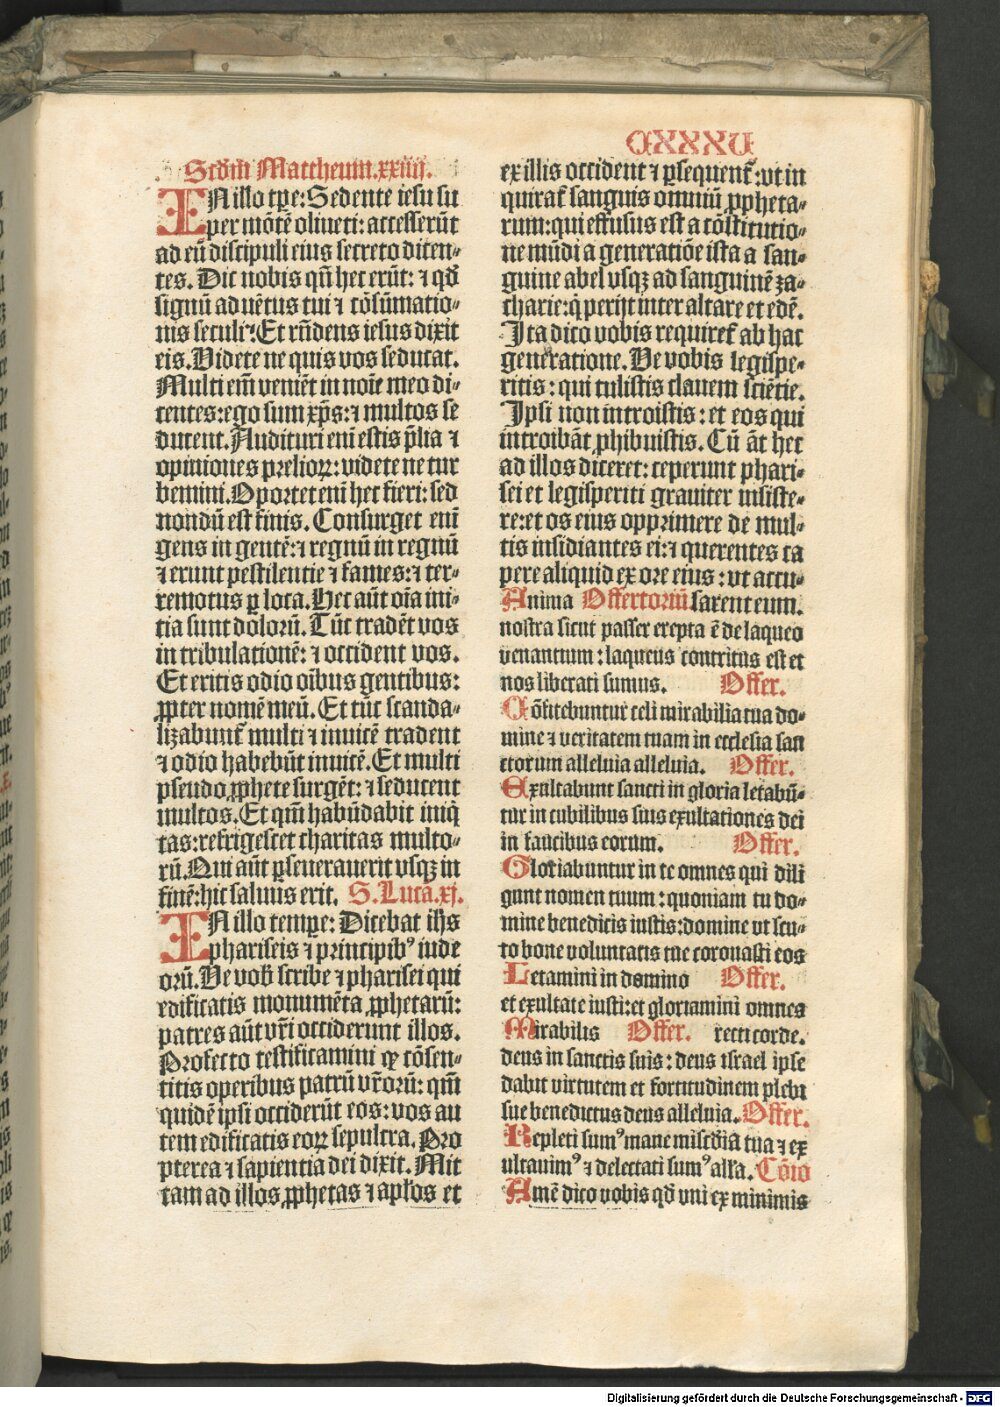 CXXXV
Scdm̄ Mattheum.xxiiij.
IN illo tpe: Sedente iesu su
per mōtē oliueti: accesserūt
ad eū discipuli eius secreto dicen⸗
tes. Dic nobis qn̄ hec erūt: ⁊ qd̄
signū aduētus tui ⁊ cōsūmatio⸗
nis seculi? Et rn̄dens iesus dixit
eis. Videte ne quis vos seducat.
Multi em̄ veniēt in noīe meo di⸗
centes: ego sum xp̄s: ⁊ multos se
ducent. Audituri eni estis p̄lia ⁊
opiniones preliorꝝ: videte ne tur
bemini. Oportet enī hec fieri: sed
nondū est finis. Consurget enī
gens in gentē: ⁊ regnū in regnū
⁊ erunt pestilentie ⁊ fames: ⁊ ter⸗
remotus ꝑ loca. Hec aūt oīa ini⸗
tia sunt dolorū. Tūc tradēt vos
in tribulationē: ⁊ occident vos.
Et eritis odio oībus gentibus:
ꝓpter nomē meū. Et tūc scanda⸗
lizabunt᷑ multi ⁊ inuicē tradent
⁊ odio habebūt inuicē. Et multi
pseudo ꝓphete surgēt: ⁊ seducent
multos. Et qm̄ habūdabit iniq̄
tas: refrigescet charitas multo⸗
rū. Qui aūt ꝑseuerauerit vsqꝫ in
finē: hic saluus erit. S. Luca.xj.
IN illo tempe: Dicebat ih̄s
phariseis ⁊ principibꝰ iude
orū. Ve vob̄ scribe ⁊ pharisei qui
edificatis monumēta ꝓphetarū:
patres aūt vr̄i occiderunt illos.
Profecto testificamini ꝙ cōsen⸗
titis operibus patrū vr̄orū: qm̄
quidē ipsi occiderūt eos: vos au
tem edificatis eorꝝ sepulcra. Pro
pterea ⁊ sapientia dei dixit. Mit
tam ad illos ꝓphetas ⁊ apl̄os et
ex illis occident ⁊ ꝑsequent᷑: vt in
quirat᷑ sanguis omniū ꝓpheta⸗
rum: qui effusus est a cōstitutio⸗
ne mūdi a generatiōe ista a san⸗
guine abel vsqꝫ ad sanguinē za⸗
charie: q̇ perijt inter altare et edē.
Ita dico vobis requiret᷑ ab hac
generatione. Ve vobis legispe⸗
ritis: qui tulistis clauem sciētie.
Ipsi non introistis: et eos qui
introibāt ꝓhibuistis. Cū āt hec
ad illos diceret: ceperunt phari⸗
sei et legisperiti grauiter insiste⸗
re: et os eius opprimere de mul⸗
tis insidiantes ei: ⁊ querentes ca
pere aliquid ex ore eius: vt accu⸗
Anima Offertoriū sarent eum.
nostra sicut passer erepta ē de laqueo
venantium: laqueus contritus est et
nos liberati sumus. Offer.
Cōfitebuntur celi mirabilia tua do⸗
mine ⁊ veritatem tuam in ecclesia san
ctorum alleluia alleluia. Offer.
Exultabunt sancti in gloria letabū⸗
tur in cubilibus suis exultationes dei
in faucibus eorum. Offer.
Gloriabuntur in te omnes qui dili
gunt nomen tuum: quoniam tu do⸗
mine benedicis iustis: domine vt scu⸗
to bone voluntatis tue coronasti eos
Letamini in domino Offer.
et exultate iusti: et gloriamini omnes
Mirabilis Offer. recti corde.
deus in sanctis suis: deus israel ipse
dabit virtutem et fortitudinem plebi
sue benedictus deus alleluia. Offer.
Repleti sumꝰ mane mīscdīa tua ⁊ ex
ultauimꝰ ⁊ delectati sumꝰ all'a. Cōio
Amē dico vobis qd̄ vni ex minimis
Digitalisierung gefördert durch die Deutsche Forschungsgemeinschaft - DFG